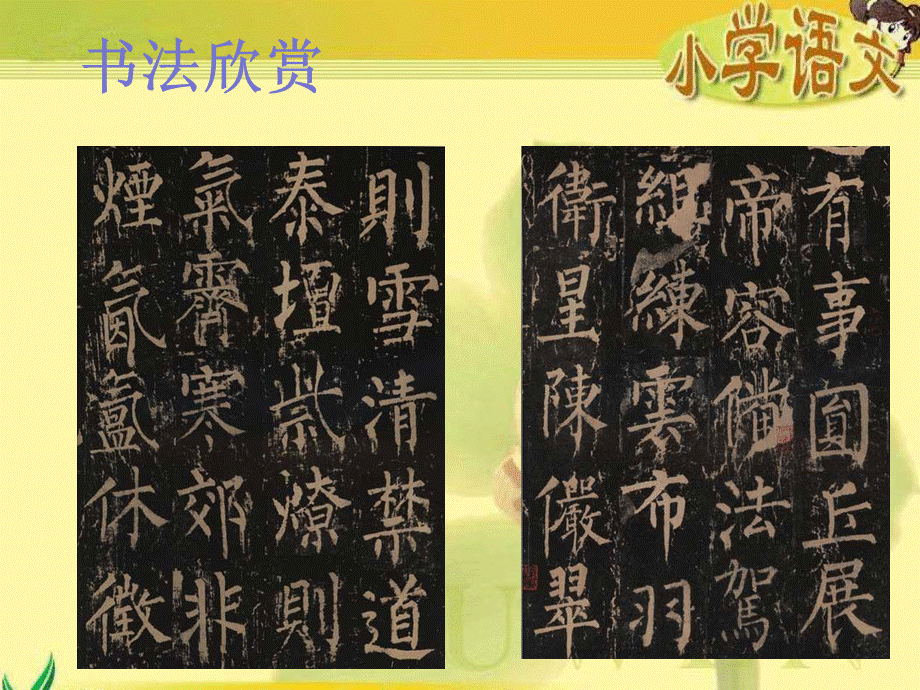 书法欣赏
小学语文
則雪清禁道
泰壇祡燎則
氣霽寒郊非
煙氤氳休徵
有事圓丘展
帝容備法駕
組練雲布羽
衛星陳儼翠